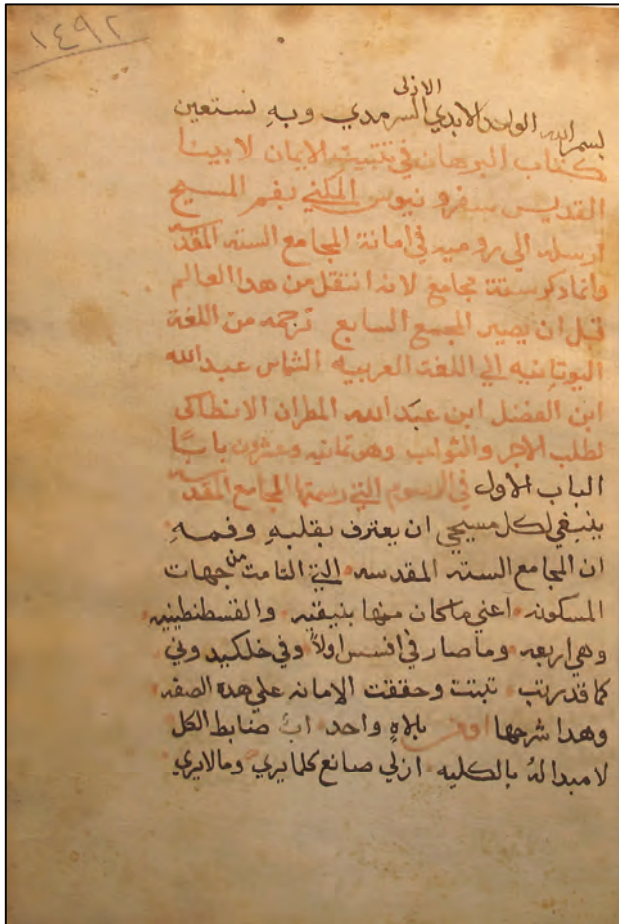 ١٤٩٢
الازلى
بسم الله الواحد الابدي السرمدي وبهِ نستعين
كتاب البرهان في تثبيت الايمان لابينا
القديس سفرونيوس المكني بفم المسيح
ارسله الي روميه في امانة المجامع السته المقدسه
وانما ذكر ستة مجامع لانه انتقل من هدا العالم
قبل ان يصير المجمع السابع ترجمه من اللغة
اليونانيه الي اللغة العربيه الشماس عبدالله
ابن الفضل ابن عبدالله المطران الانطاكى
لطلب الاجر والثواب وهو ثمانيه وعشرون بابًا
الباب الاول في الرسوم التي رسمتها المجامع المقدسه
ينبغي لكل مسيحي ان يعترف بقلبهِ وفمهِ
ان المجامع السته المقدسه التي التامت من جهات
المسكونه اعني ما كان منها بنيقيه والقسطنطينيه
وهي اربعه وما صار في افسس اولاً وفي خلكيدوني
كما قد رتب تبتت وحققت الامانه علي هده الصفه
وهدا شرحها اومن بالاهٍ واحد ابٌ ضابط الكل
لا مبدا لهُ بالكليه ازلي صانع كلما يري وما لا يري